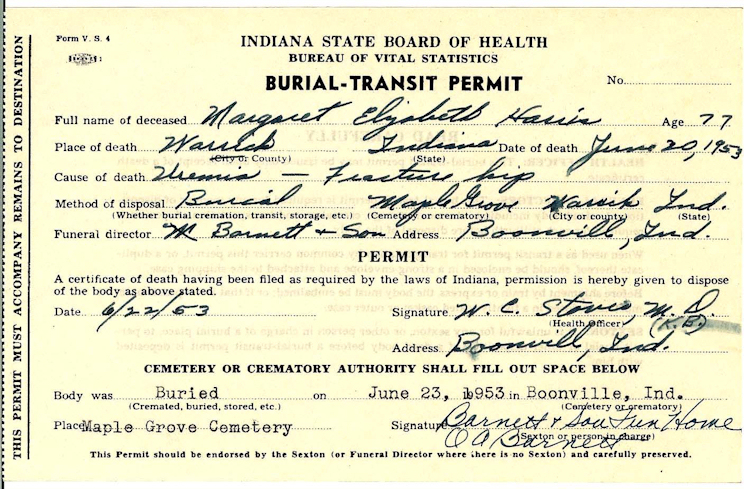 Form V. S. 4
INDIANA STATE BOARD OF HEALTH
BUREAU OF VITAL STATISTICS
BURIAL-TRANSIT PERMIT
No.
Full name of deceased Margaret Elizabeth Harris Age 77
Place of death Warrick Indiana Date of death June 20, 1953
(City or County) (State)
Cause of death Uremia — Fracture hip
Method of disposal Burial Maple Grove Warrick Ind.
(Whether burial cremation, transit, storage, etc.) (Cemetery or crematory) (City or county) (State)
Funeral director M Barnett & Son Address Boonvill, Ind.
PERMIT
A certificate of death having been filed as required by the laws of Indiana, permission is hereby given to dispose
of the body as above stated.
Date 6/22/53 Signature W. C. Stover M. D.
(Health Officer) (K.B.)
Address Boonvill, Ind.
CEMETERY OR CREMATORY AUTHORITY SHALL FILL OUT SPACE BELOW
Body was Buried on June 23, 1953 in Boonville, Ind.
(Cremated, buried, stored, etc.) (Cemetery or crematory)
Place Maple Grove Cemetery Signature Barnett & Son Fun Home
O A Barnett
(Sexton or person in charge)
This Permit should be endorsed by the Sexton (or Funeral Director where there is no Sexton) and carefully preserved.
THIS PERMIT MUST ACCOMPANY REMAINS TO DESTINATION